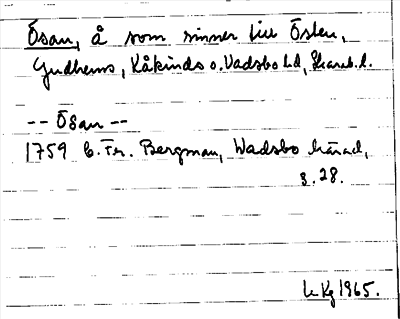 Ösan, å som rinner till Östen,
Gudhems, Kåkinds o. Vadsbo hd, Skarab. l.
-- Ösan --
1759 C. Fr. Bergman, Wadsbo härad,
s. 28.
Kg 1965.